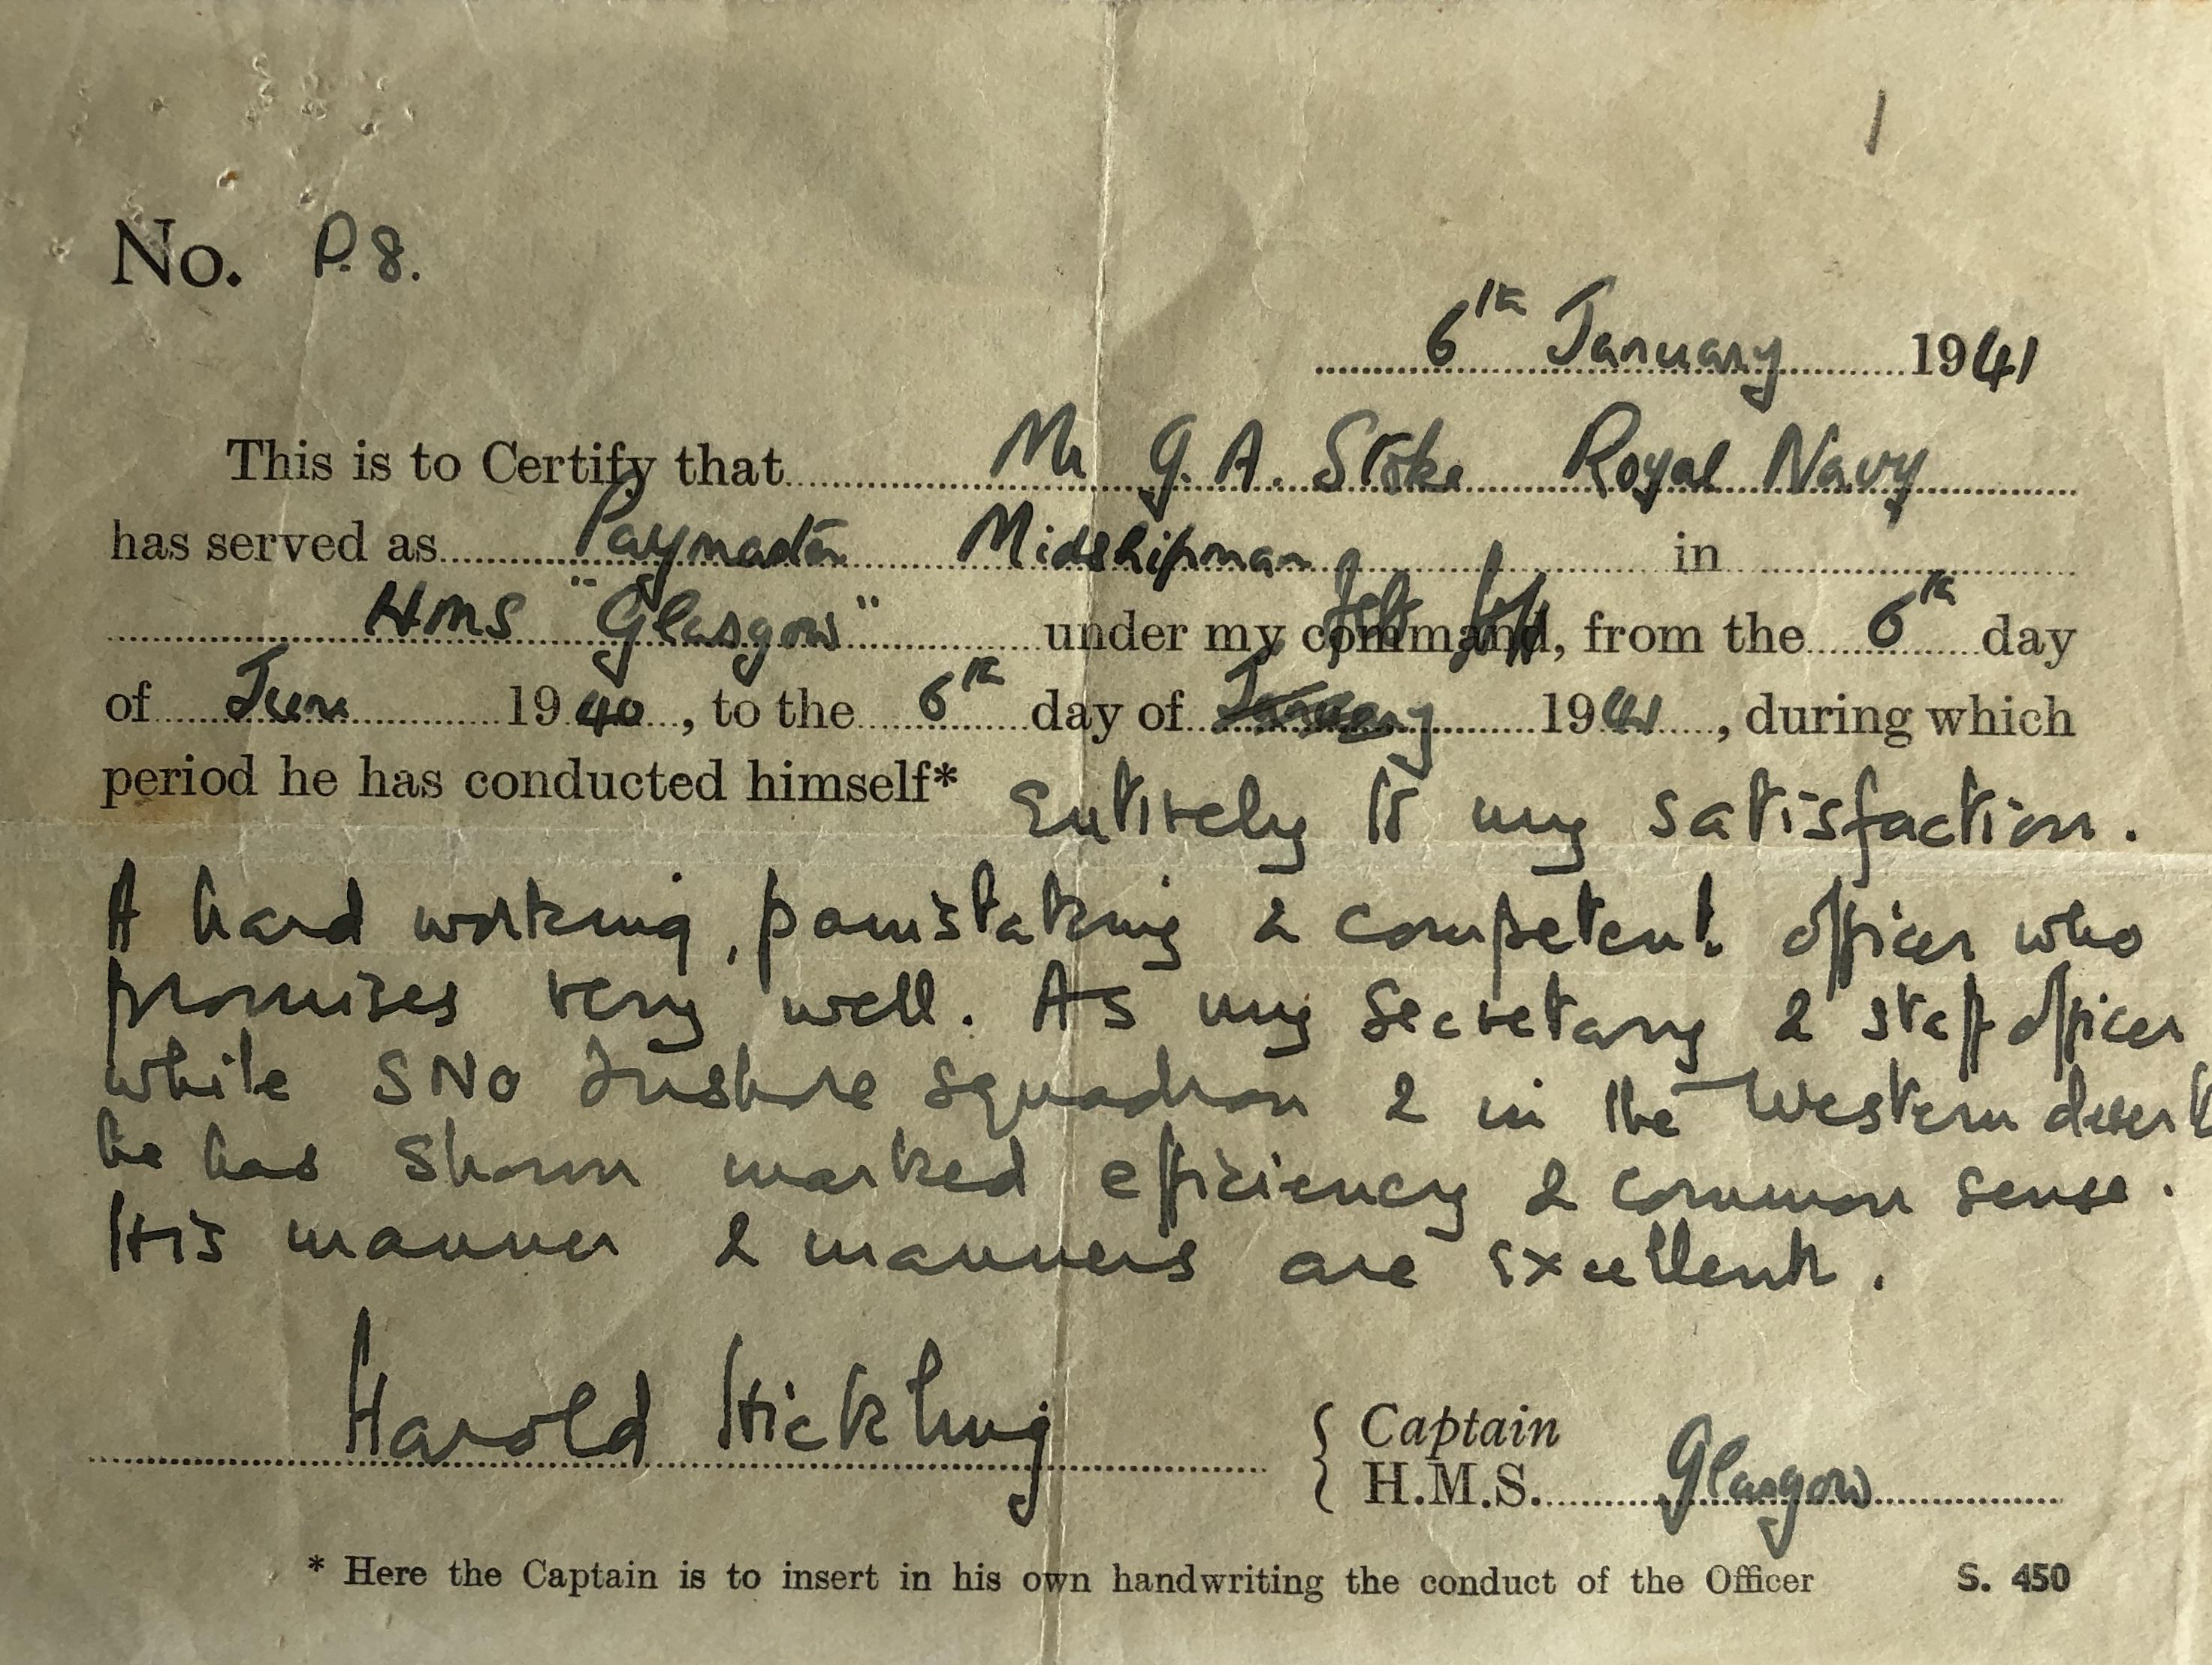 1
No. P.8.
6th January 1941
This is to Certify that Mr G.A. Stoke Royal Navy
has served as Paymaster Midshipman in
HMS "Glasgow" under my command, from the 6th day
of June 1940, to the 6th day of January 1941, during which
period he has conducted himself* Entirely to my satisfaction.
A hard working, painstaking & competent officer who
promises very well. As my Secretary & staff officer
while SNO Inshore Squadron & in the Western desert
he has shown marked efficiency & common sense.
His manner & manners are excellent.
Harold Hickling { Captain
H.M.S. Glasgow
* Here the Captain is to insert in his own handwriting the conduct of the Officer S. 450